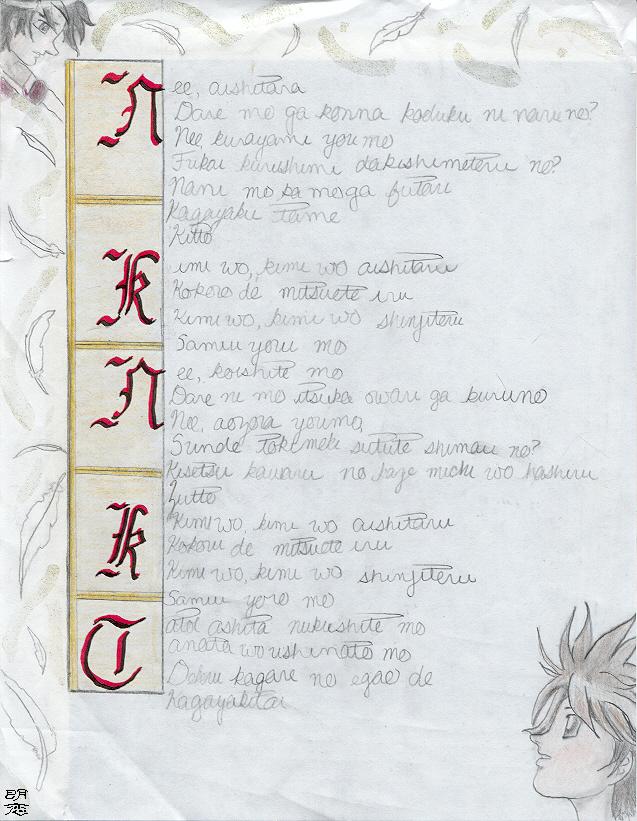 Nee, aishitara
Dare mo ga konna koduku ni naru no?
Nee, kurayami you mo
Fukai kurushimi dakishimeteru no?
Nani mo ka mo ga futari
Kagayaku tame
Kitto
Kimi wo, kimi wo aishitaru
Kokoro de mitsuete iru
Kimi wo, kimi wo shinjiteru
Samui yoru mo
Nee, koishite mo
Dare ni mo itsuka owari ga kuru no
Nee, aozora you mo,
Sunde tokimeki sutute shimau no?
Kisetsu kawaru no kaze michi wo hashiru
Zutto
Kimi wo, kimi wo aishitaru
Kokoru de mitsuete iru
Kimi wo, kimi wo shinjiteru
Samui yoro mo
Tatoi ashita nukushite mo
anata wo ushinato mo
Dekiru kagare no egao de
Kagayakitai